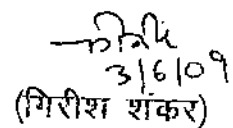 3/6/09
(गिरीश शंकर)